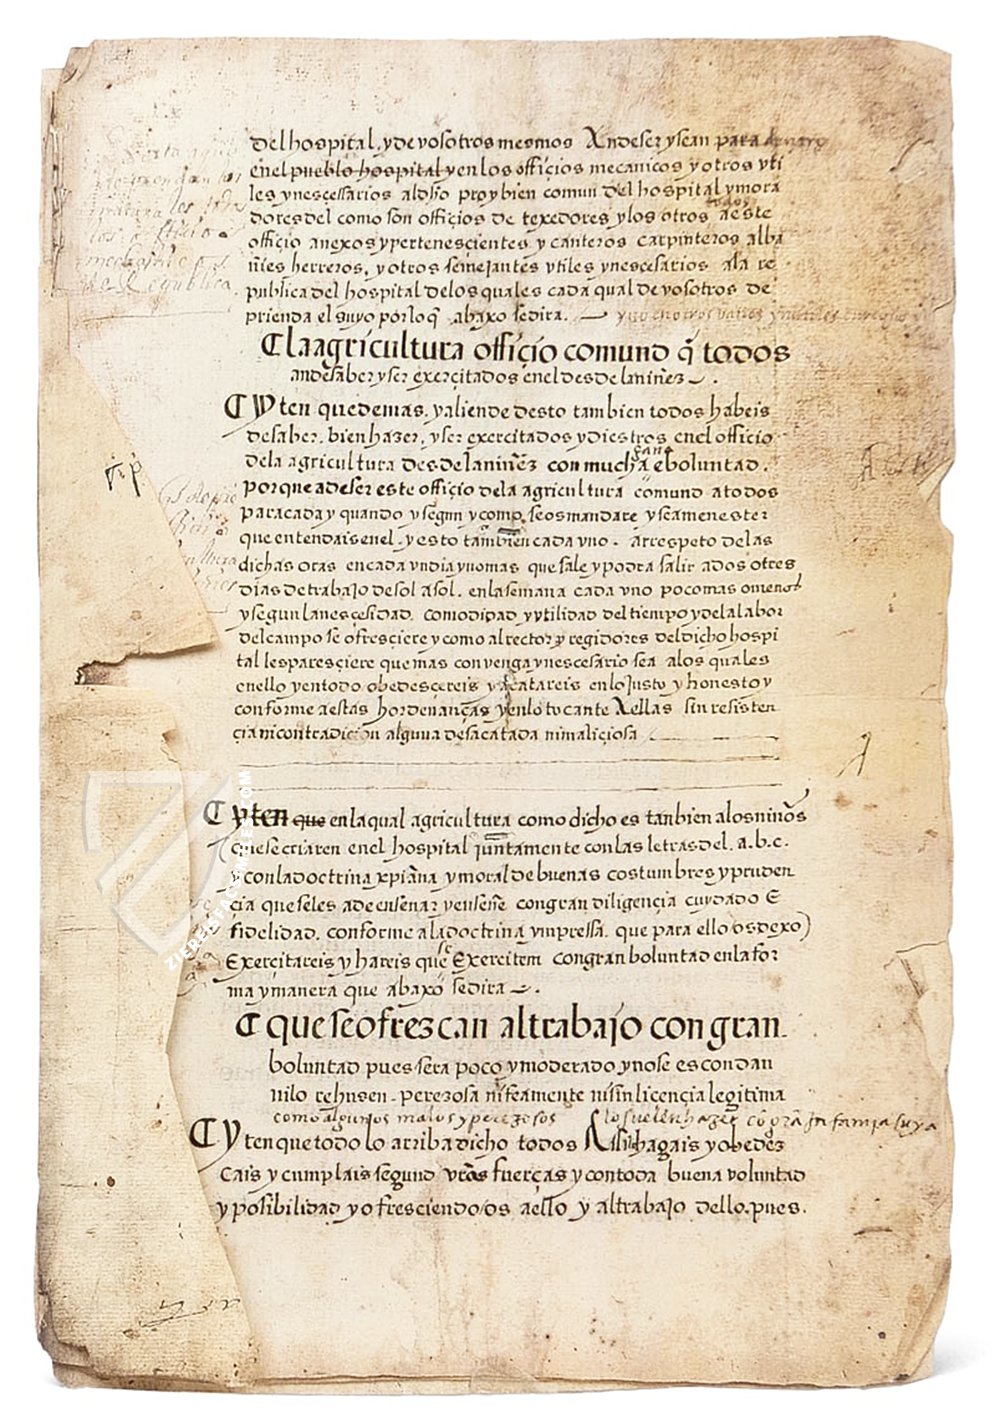 del hospital, y de vosotros mesmos An de ser y sean para
en el pueblo hospital y en los officios mecanicos y otros vti
les y nescessarios al dh̃o pro y bien comun del hospital y mora
dores del como son officios de texedores y los otros a este
todos
officio anexos y pertenescientes y canteros carpinteros alba
ñies herreros, y otros semejantes vtiles y nescesarios a la re
publica del hospital de los quales cada qual de vosotros de
prienda el suyo por lo q̃ abaxo se dira.
¶ La agricultura officio comund q̃ todos
an de saber y ser exercitados en el desde la niñez
¶ Yten que demas, y aliende desto tambien todos habeis
de saber, bien hazer, y ser exercitados y diestros en el officio
gana
de la agricultura desde la niñez con mucha e boluntad.
Porque a de ser este officio de la agricultura comund a todos
para cada y quando y segun y como se os mandare y sea menester
que entendais en el, y esto tambien cada vno. a respeto de las
dichas oras en cada vn dia y no mas que sale y podra salir a dos o tres
dias de trabajo de sol a sol, en la semana cada vno poco mas o menos
y segun la nescesidad, comodidad y vtilidad del tiempo y de la labor
del campo se ofresciere y como al rector y regidores del dicho hospi
tal les paresciere que mas convenga y nescesario sea a los quales
en ello y en todo obedescereis y acatareis en lo justo y honesto y
conforme a estas hordenanças y en lo tocante A ellas sin resisten
cia ni contradicion alguna desacatada ni maliciosa
¶ Yten que en la qual agricultura como dicho es tanbien a los niños
que se criaren en el hospital juntamente con las letras del. a.b.c.
y con la doctrina xpiãna y moral de buenas costumbres y pruden
cia que se les a de enseñar y enseñe con gran diligencia cuydado E
fidelidad, conforme a la doctrina ympressa, que para ello os dexo)
se
Exercitareis y hareis que Exerciten con gran boluntad en la for
ma y manera que abaxo se dira
¶ que se ofrezcan al trabajo con gran
boluntad pues sera poco y moderado y no se escondan
ni lo rehusen perezosa ni feamente ni sin licencia legitima
como algunos malos y perezosos lo suelen hazer cõ grã Infamia suya
¶ Yten que todo lo arriba dicho todos Asi hagais y obedez
cais y cumplais segund vr̃as fuerças y con toda buena voluntad
y posibilidad y ofresciendo os a ello y al trabajo dello, pues.
ZIEREIS FACSIMILE.COM